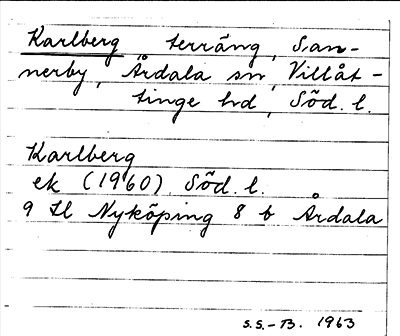 Karlberg, terräng, San-
nerby, Årdala sn, Villåt-
tinge hd, Söd. l.
Karlberg
ek (1960) Söd. l.
9 H Nyköping 8 b Årdala
S.S.-B. 1963